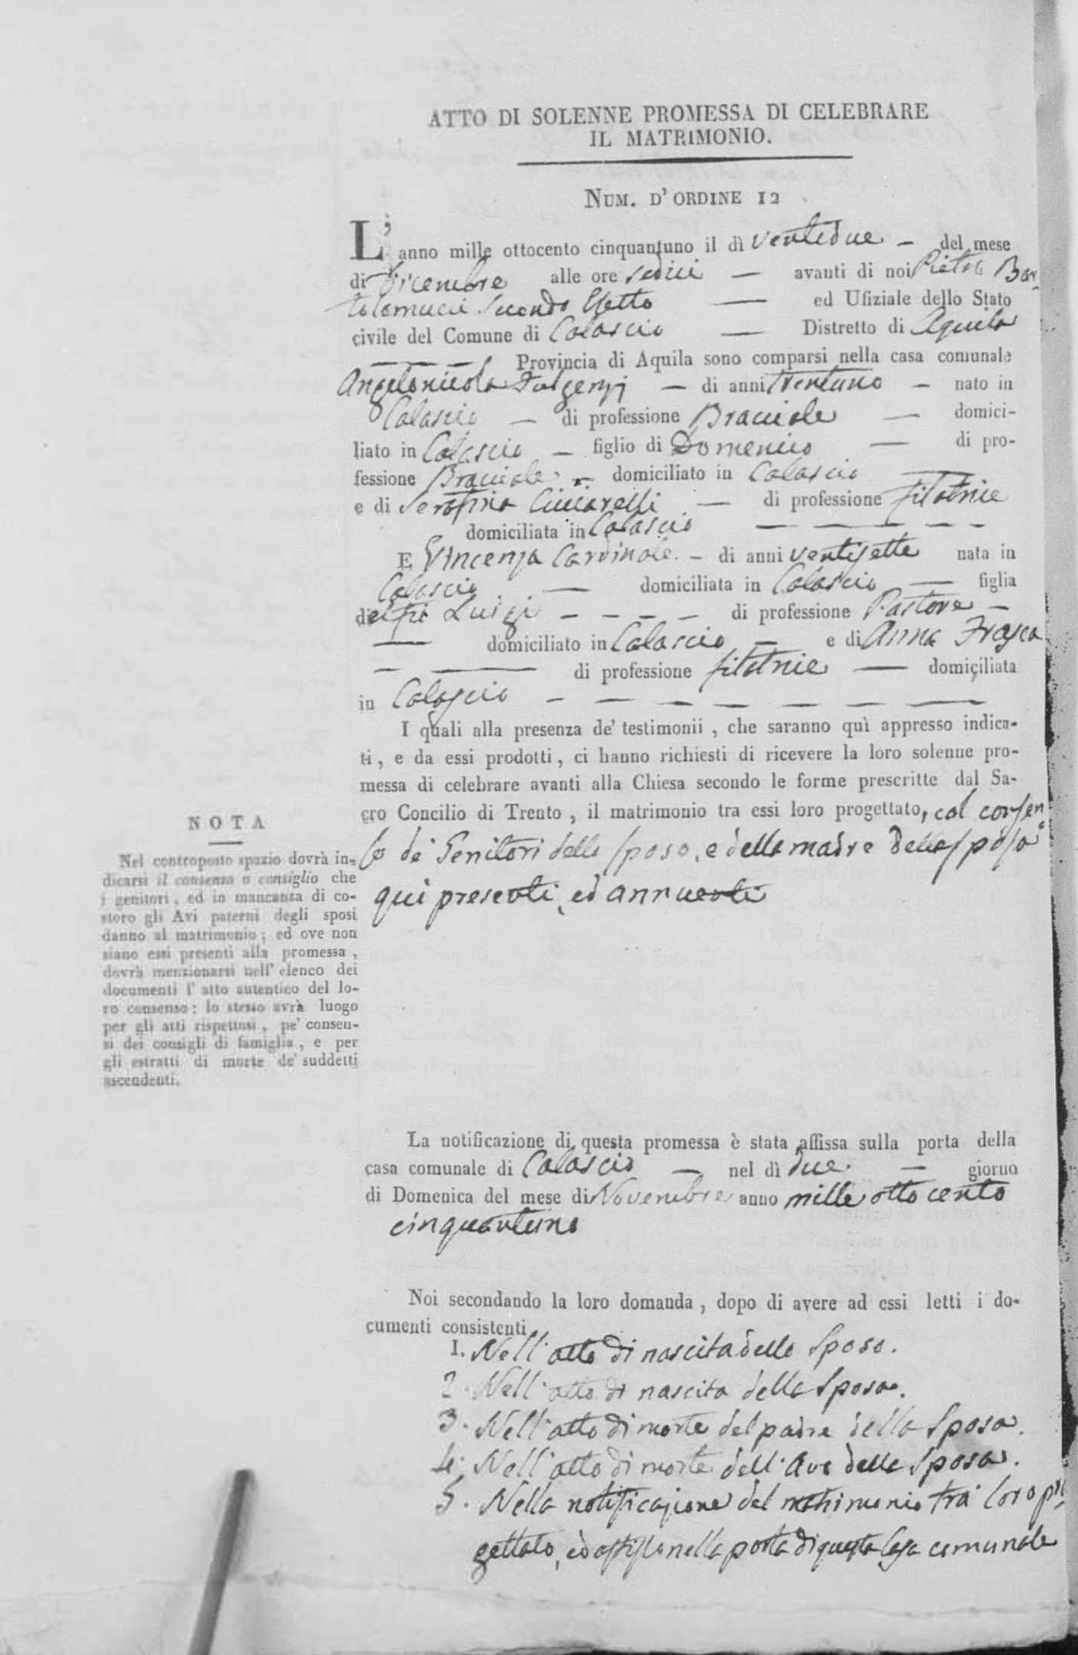 ATTO DI SOLENNE PROMESSA DI CELEBRARE
IL MATRIMONIO.
NUM. D'ORDINE 12
L'anno mille ottocento cinquantuno il dì ventidue — del mese
di Dicembre alle ore sedici — avanti di noi Pietro Bar
tolomucci Secondo Eletto — ed Ufiziale dello Stato
civile del Comune di Calascio — Distretto di Aquila
— Provincia di Aquila sono comparsi nella casa comunale
Angelonicola Fulgenzj — di anni trentuno — nato in
Calascio — di professione Bracciale — domici-
liato in Calascio — figlio di Domenico — di pro-
fessione Bracciale — domiciliato in Calascio —
e di Serafina Ciccarelli — di professione filatrice
domiciliata in Calascio — — — — —
E Vincenza Cardinale — di anni ventisette nata in
Calascio — domiciliata in Calascio — figlia
del fù Luigi — — — — di professione Pastore —
— domiciliato in Calascio — e di Anna Frasca
— — di professione filatrice — domiciliata
in Calascio — — — — — — —
I quali alla presenza de' testimonii, che saranno quì appresso indica-
ti, e da essi prodotti, ci hanno richiesti di ricevere la loro solenne pro-
messa di celebrare avanti alla Chiesa secondo le forme prescritte dal Sa-
cro Concilio di Trento, il matrimonio tra essi loro progettato, col consen
so de' Genitori dello sposo, e della madre della sposa
qui presenti, ed annuenti
NOTA
Nel contropoosto spazio dovrà in-
dicarsi il consenso o consiglio che
i genitori, ed in mancanza di co-
storo gli Avi paterni degli sposi
danno al matrimonio; ed ove non
siano essi presenti alla promessa,
dovrà menzionarsi nell' elenco dei
documenti l' atto autentico del lo-
ro consenso: lo stesso avrà luogo
per gli atti rispettosi, pe' consen-
si dei consigli di famiglia, e per
gli estratti di morte de' suddetti
ascendenti.
La notificazione di questa promessa è stata affissa sulla porta della
casa comunale di Calascio — nel dì due — giorno
di Domenica del mese di Novembre anno mille otto cento
cinquantuno
Noi secondando la loro domanda, dopo di avere ad essi letti i do-
cumenti consistenti
1. Nell'atto di nascita dello Sposo.
2. Nell'atto di nascita della Sposa.
3. Nell'atto di morte del padre della Sposa.
4. Nell'atto di morte dell'Avo della Sposa.
5. Nella notificazione del matrimonio tra' loro pro
gettato, ed affisso nella porta di questa Casa comunale